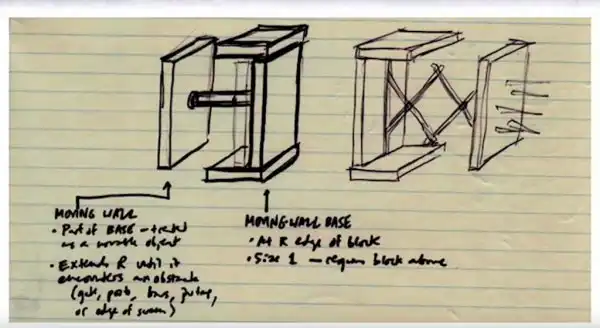 MOVING WALL
• Part of BASE – treated
as a movable object
• Extends R until it
encounters an obstacle
(gate, posts,
or edge of screen)
MOVING WALL BASE
• At R edge of block
• Size 1 — requires block above